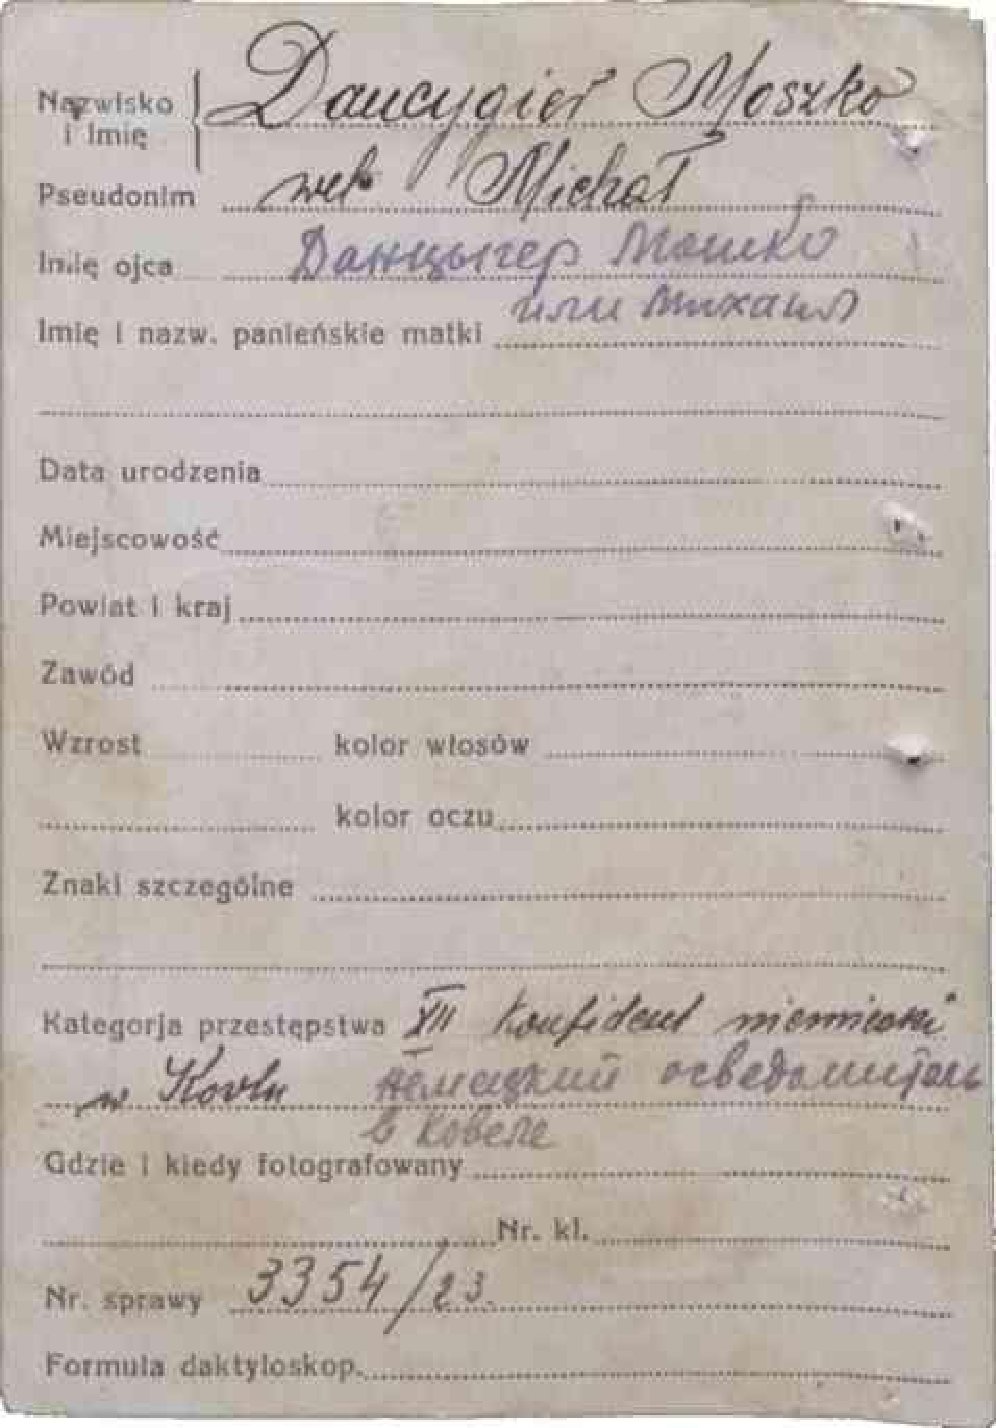 Nazwisko i Imię Dancygier Moszko
Pseudonim vel Michał
Imię ojca Данцыгер Мошко
или Михаил
Imię i nazw. panieńskie matki
Data urodzenia
Miejscowość
Powiat i kraj
Zawód
Wzrost kolor włosów
kolor oczu
Znaki szczególne
Kategorja przestępstwa XII Konfident niemiecki
w Kovlu немецкий осведомитель
в Ковеле
Gdzie i kiedy fotografowany
Nr. kl.
Nr. sprawy 3354/23.
Formula daktyloskop.